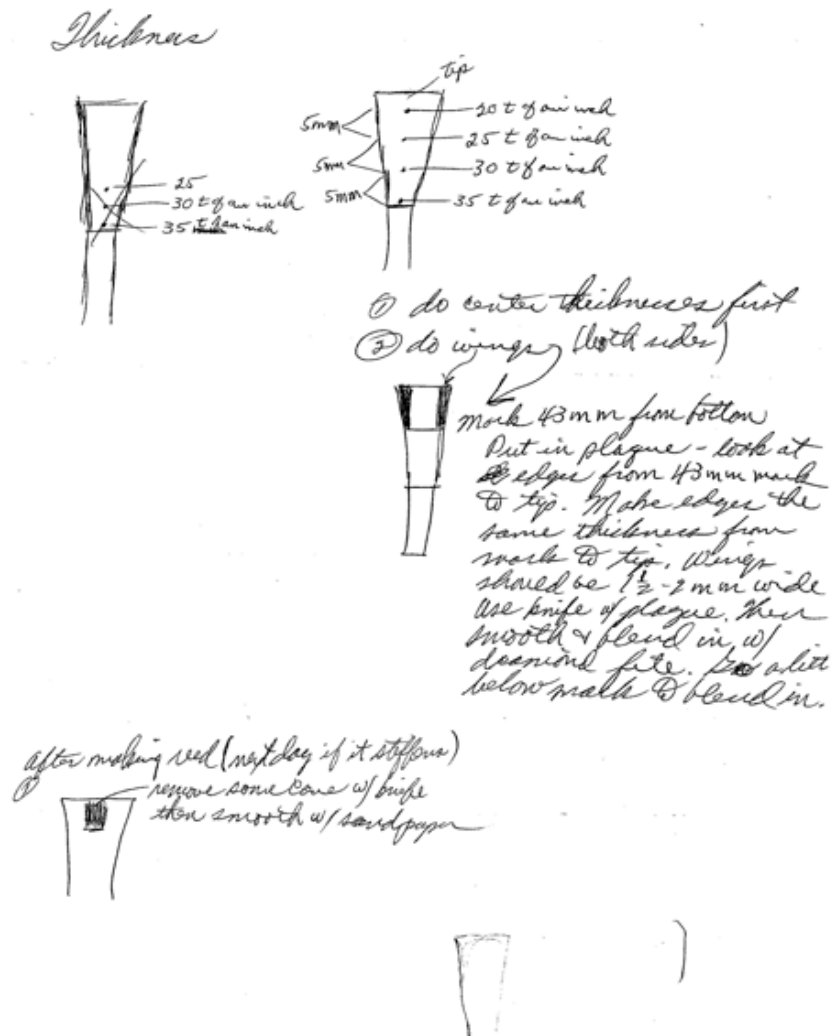 Thickness
tip
5mm
20 t of an inch
25 t of an inch
5mm
30 t of an inch
5mm
35 t of an inch
25
30 t of an inch
35 t of an inch
① do center thicknesses first
② do wings (both sides)
Mark 43mm from bottom
Put in plaque - look at
edges from 43mm mark
to tip. Make edges the
same thickness from
mark to tip. Wings
should be 1½-2mm wide
use knife w/ plaque. Then
smooth & blend in w/
diamond file. Go a litt
below mark to blend in.
after making reed (next day if it stiffens)
①
remove some cane w/ knife
then smooth w/ sandpaper